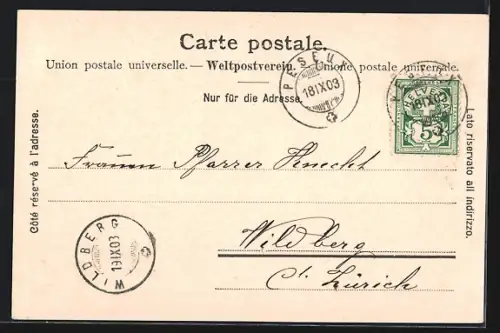 Carte postale.
Union postale universelle. — Weltpostverein. — Unione postale universale.
Nur für die Adresse.
PESEUX
18 IX 03
HELVETIA
5
18 IX 03
Côté réservé à l'adresse.
Lato riservato all indirizzo.
Frauen Pfarrer Knecht
Wildberg
Ct. Zürich
WILDBERG
19 IX 03